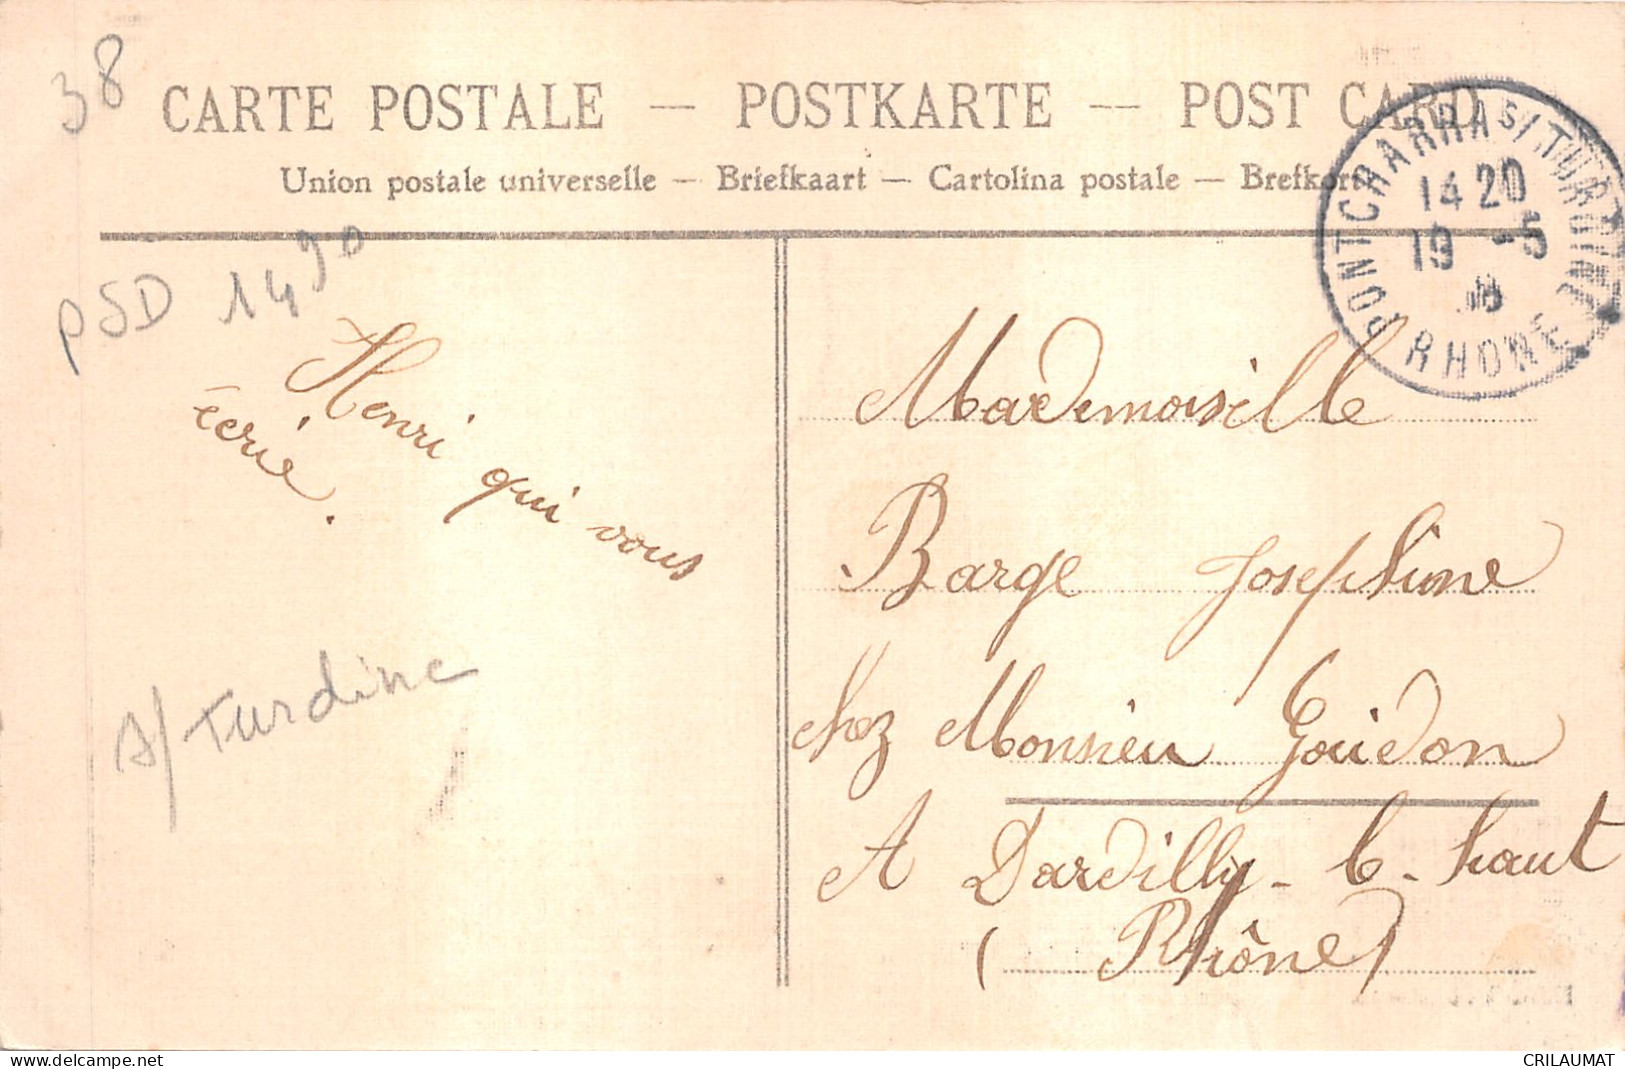 38
CARTE POSTALE — POSTKARTE — POST CARD
Union postale universelle — Briefkaart — Cartolina postale — Brefkort
PONTCHARRA S/TURDINE
14 20
19 -5
RHONE
PSD 1490
Henri qui vous
écrie.
S/ Turdine
Mademoisille
Barge Josephine
chez Monsieu Goidon
A Dardilly - l - haut
(Rhône)
www.delcampe.net
CRILAUMAT